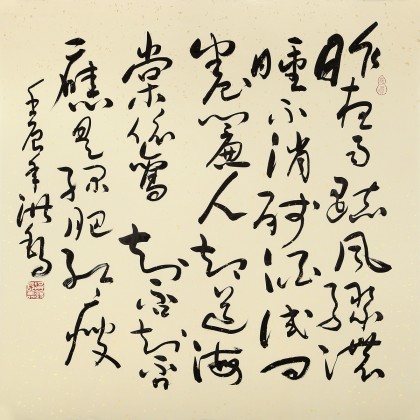 昨夜雨疏风骤濃
睡不消残酒试问
卷簾人却道海
棠依舊知否知否
應是绿肥红瘦
壬辰年洪